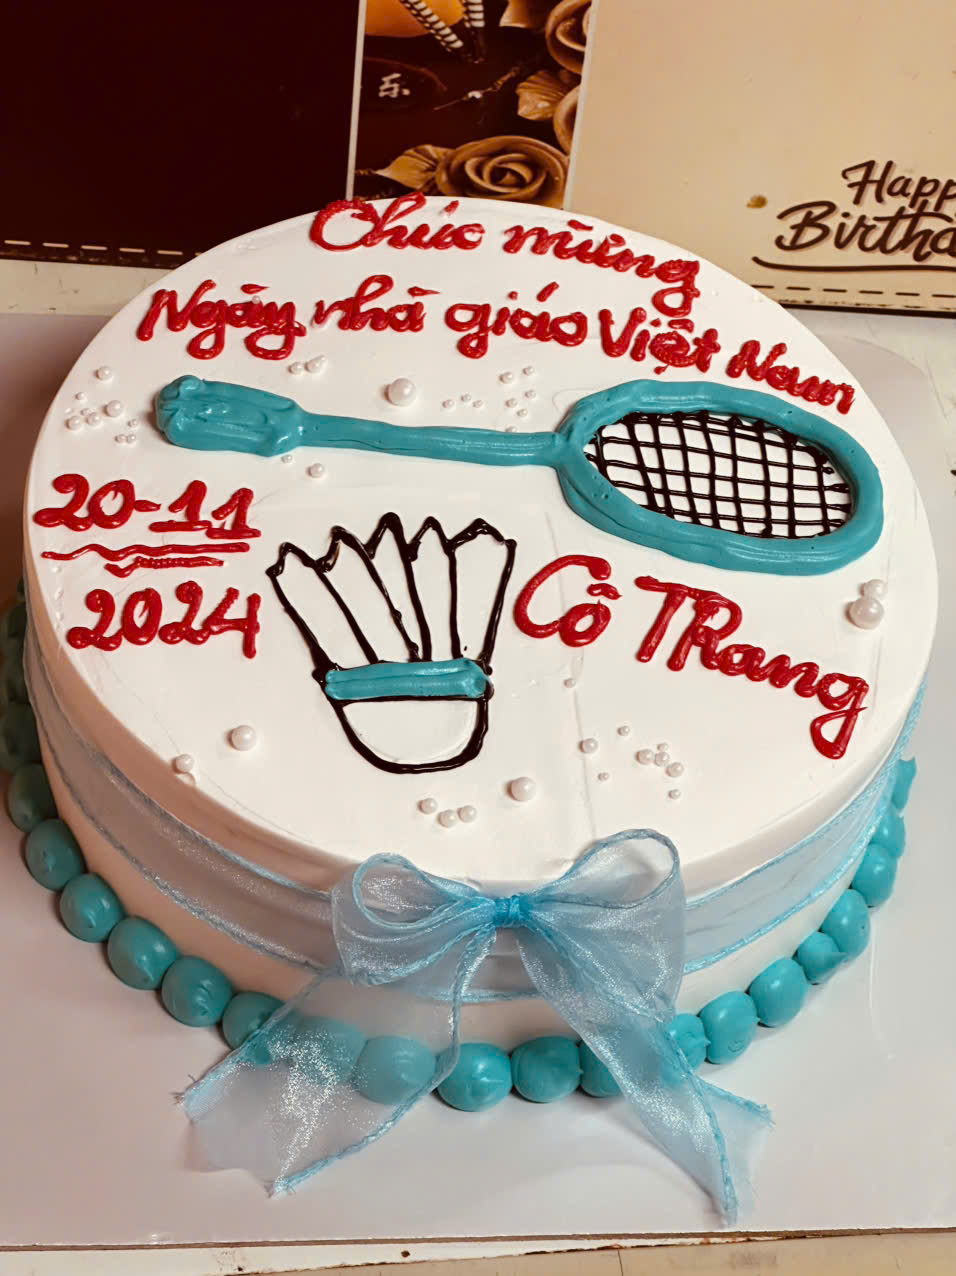 乐
Happ
Birthda
Chúc mừng
Ngày nhà giáo Việt Nam
20-11
2024
Cô TRang